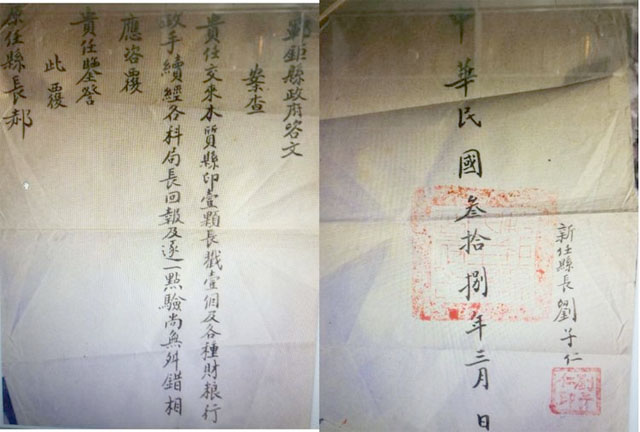 鄲鉅縣政府咨文
案查
貴任交来木質縣印壹顆長戳壹個及各種財粮行
政手續經各科局長回報及逐一點驗尚無舛錯相
應咨覆
貴任鑒詧
此覆
原任縣長郝
中華民國叁拾捌年三月 日
新任縣長劉子仁
劉子仁印